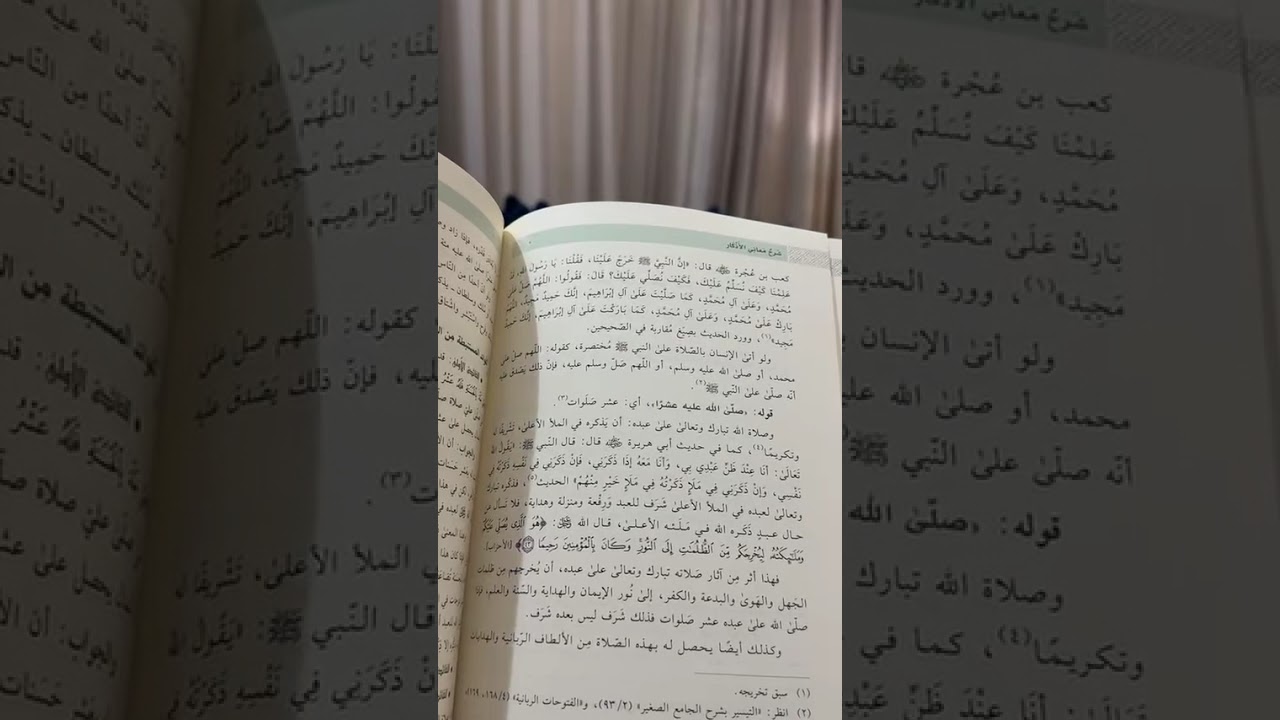 شرح معاني الأذكار
كعب بن عُجْرة ﵁ قال: «إنَّ النَّبِيَّ ﷺ خَرَجَ عَلَيْنَا، فَقُلْنَا: يَا رَسُولَ اللهِ، قَدْ
عَلِمْنَا كَيْفَ نُسَلِّمُ عَلَيْكَ، فَكَيْفَ نُصَلِّي عَلَيْكَ؟ قَالَ: فَقُولُوا: اللَّهُمَّ صَلِّ عَلَىٰ
مُحَمَّدٍ، وَعَلَىٰ آلِ مُحَمَّدٍ، كَمَا صَلَّيْتَ عَلَىٰ آلِ إِبْرَاهِيمَ، إِنَّكَ حَمِيدٌ مَجِيدٌ، اللَّهُمَّ
بَارِكْ عَلَىٰ مُحَمَّدٍ، وَعَلَىٰ آلِ مُحَمَّدٍ، كَمَا بَارَكْتَ عَلَىٰ آلِ إِبْرَاهِيمَ، إِنَّكَ حَمِيدٌ
مَجِيد»(١)، وورد الحديث بصِيَغ مُقاربة في الصّحيحين.
ولو أتىٰ الإنسان بالصّلاة علىٰ النبي ﷺ مُختصرة، كقوله: اللّهم صلّ علىٰ
محمد، أو صلىٰ الله عليه وسلم، أو اللّهم صَلّ وسلم عليه، فإنّ ذلك يَصْدق عليه
أنّه صلّىٰ علىٰ النّبي ﷺ(٢).
قوله: «صلّىٰ الله عليه عشرًا»، أي: عشر صَلَوات(٣).
وصلاة الله تبارك وتعالىٰ علىٰ عبده: أن يَذكره في الملأ الأعلىٰ، تَشْريفًا له
وتكريمًا(٤)، كما في حديث أبي هريرة ﵁ قال: قال النّبي ﷺ: «يَقُولُ اللهُ
تَعَالَىٰ: أَنَا عِنْدَ ظَنِّ عَبْدِي بِي، وَأَنَا مَعَهُ إِذَا ذَكَرَنِي، فَإِنْ ذَكَرَنِي فِي نَفْسِهِ ذَكَرْتُهُ فِي
نَفْسِي، وَإِنْ ذَكَرَنِي فِي مَلَإٍ ذَكَرْتُهُ فِي مَلَإٍ خَيْرٍ مِنْهُمْ» الحديث(٥)، فذكره تبارك
وتعالىٰ لعبده في الملأ الأعلىٰ شَرَف للعبد ورِفْعة ومنزلة وهداية، فلا تَسأل عن
حال عبدٍ ذَكَره الله في مَلَئه الأعلىٰ، قال الله ﷻ: ﴿هُوَ ٱلَّذِى يُصَلِّى عَلَيْكُمْ
وَمَلَٰٓئِكَتُهُۥ لِيُخْرِجَكُم مِّنَ ٱلظُّلُمَٰتِ إِلَى ٱلنُّورِ ۚ وَكَانَ بِٱلْمُؤْمِنِينَ رَحِيمًا ۝٤٣﴾ [الأحزاب].
فهذا أثر مِن آثار صَلاته تبارك وتعالىٰ علىٰ عبده، أن يُخرجهم مِن ظلمات
الجَهل والهَوىٰ والبدعة والكفر، إلىٰ نُور الإيمان والهداية والسّنّة والعلم، فإذا
صلّىٰ الله علىٰ عبده عشر صَلوات فذلك شَرَف ليس بعده شَرَف.
وكذلك أيضًا يحصل له بهذه الصّلاة مِن الألطاف الرّبّانية والهدايات
(١) سبق تخريجه.
(٢) انظر: «التيسير بشرح الجامع الصغير» (٢/ ٩٣)، و«الفتوحات الربانية» (٤/ ١٦٨، ١٦٩)،